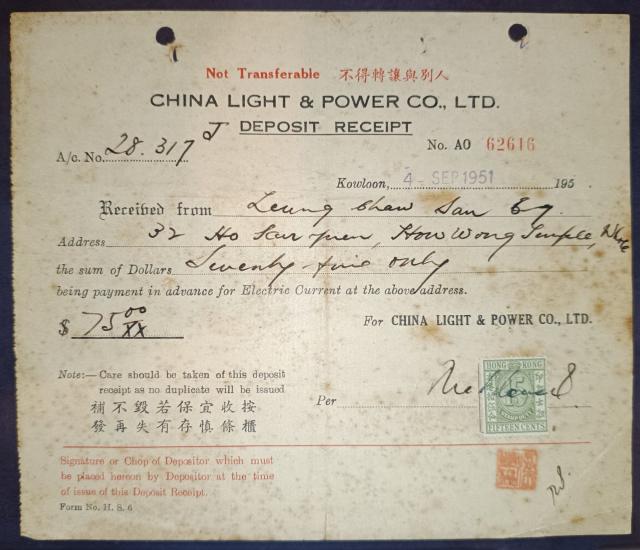 Not Transferable 不得轉讓與別人
CHINA LIGHT & POWER CO., LTD.
DEPOSIT RECEIPT
A/c. No. 28.317 J
No. AO 62616
Kowloon, 4 - SEP 1951 195
Received from Leung Chaw San
Address 32 Ho, How Wong Temple,
the sum of Dollars Seventy five only
being payment in advance for Electric Current at the above address.
$ 75 00/XX
For CHINA LIGHT & POWER CO., LTD.
Note:— Care should be taken of this deposit
receipt as no duplicate will be issued
補不毀若保宜收按
發再失有存慎條櫃
Per
HONG KONG
15
STAMP DUTY
FIFTEEN CENTS
Signature or Chop of Depositor which must
be placed hereon by Depositor at the time
of issue of this Deposit Receipt.
Form No. H. S. 6